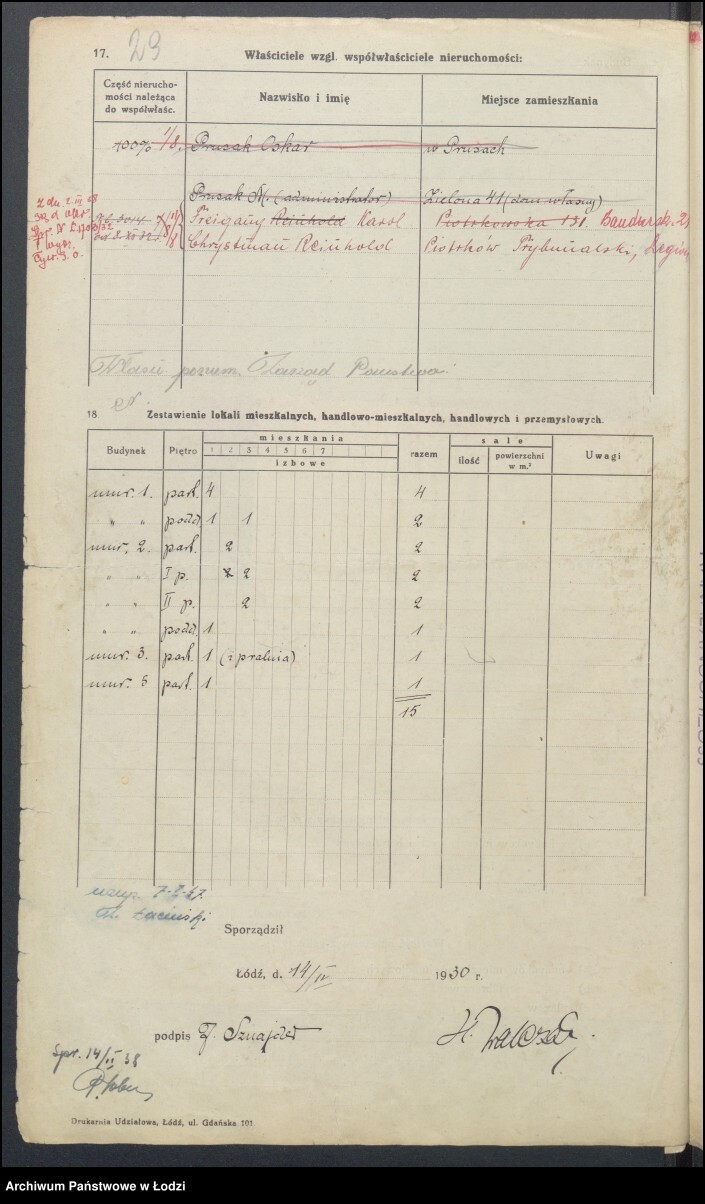 17. 29 Właściciele wzgl. współwłaściciele nieruchomości:
Część nierucho-
mości należąca
do współwłaśc.
Nazwisko i imię
Miejsce zamieszkania
100% 1/8. Prusak Oskar w Prusach
Prusak M. (administrator) Zielona 41 (dom własny)
Freigang Reinhold Karol Piotrkowska 131. Bandursk. 2
Chrystman Reinhold Piotrków Trybunalski,
Zarząd Państwa
18. Zestawienie lokali mieszkalnych, handlowo-mieszkalnych, handlowych i przemysłowych.
Budynek Piętro mieszkania razem sale Uwagi
1 2 3 4 5 6 7
izbowe
ilość powierzchni
w m.²
mur. 1. part. 4 4
" " podd. 1 1 2
mur. 2. part. 2 2
" " I p. 2 2
" " II p. 2 2
" " podd. 1 1
mur. 3. part. 1 (i pralnia) 1
mur. 5 part. 1 1
15
Sporządził
Łódź, d. 14/IV 1930 r.
podpis J. Sznajder
Spr. 14/II 38
Drukarnia Udziałowa, Łódź, ul. Gdańska 101
Archiwum Państwowe w Łodzi